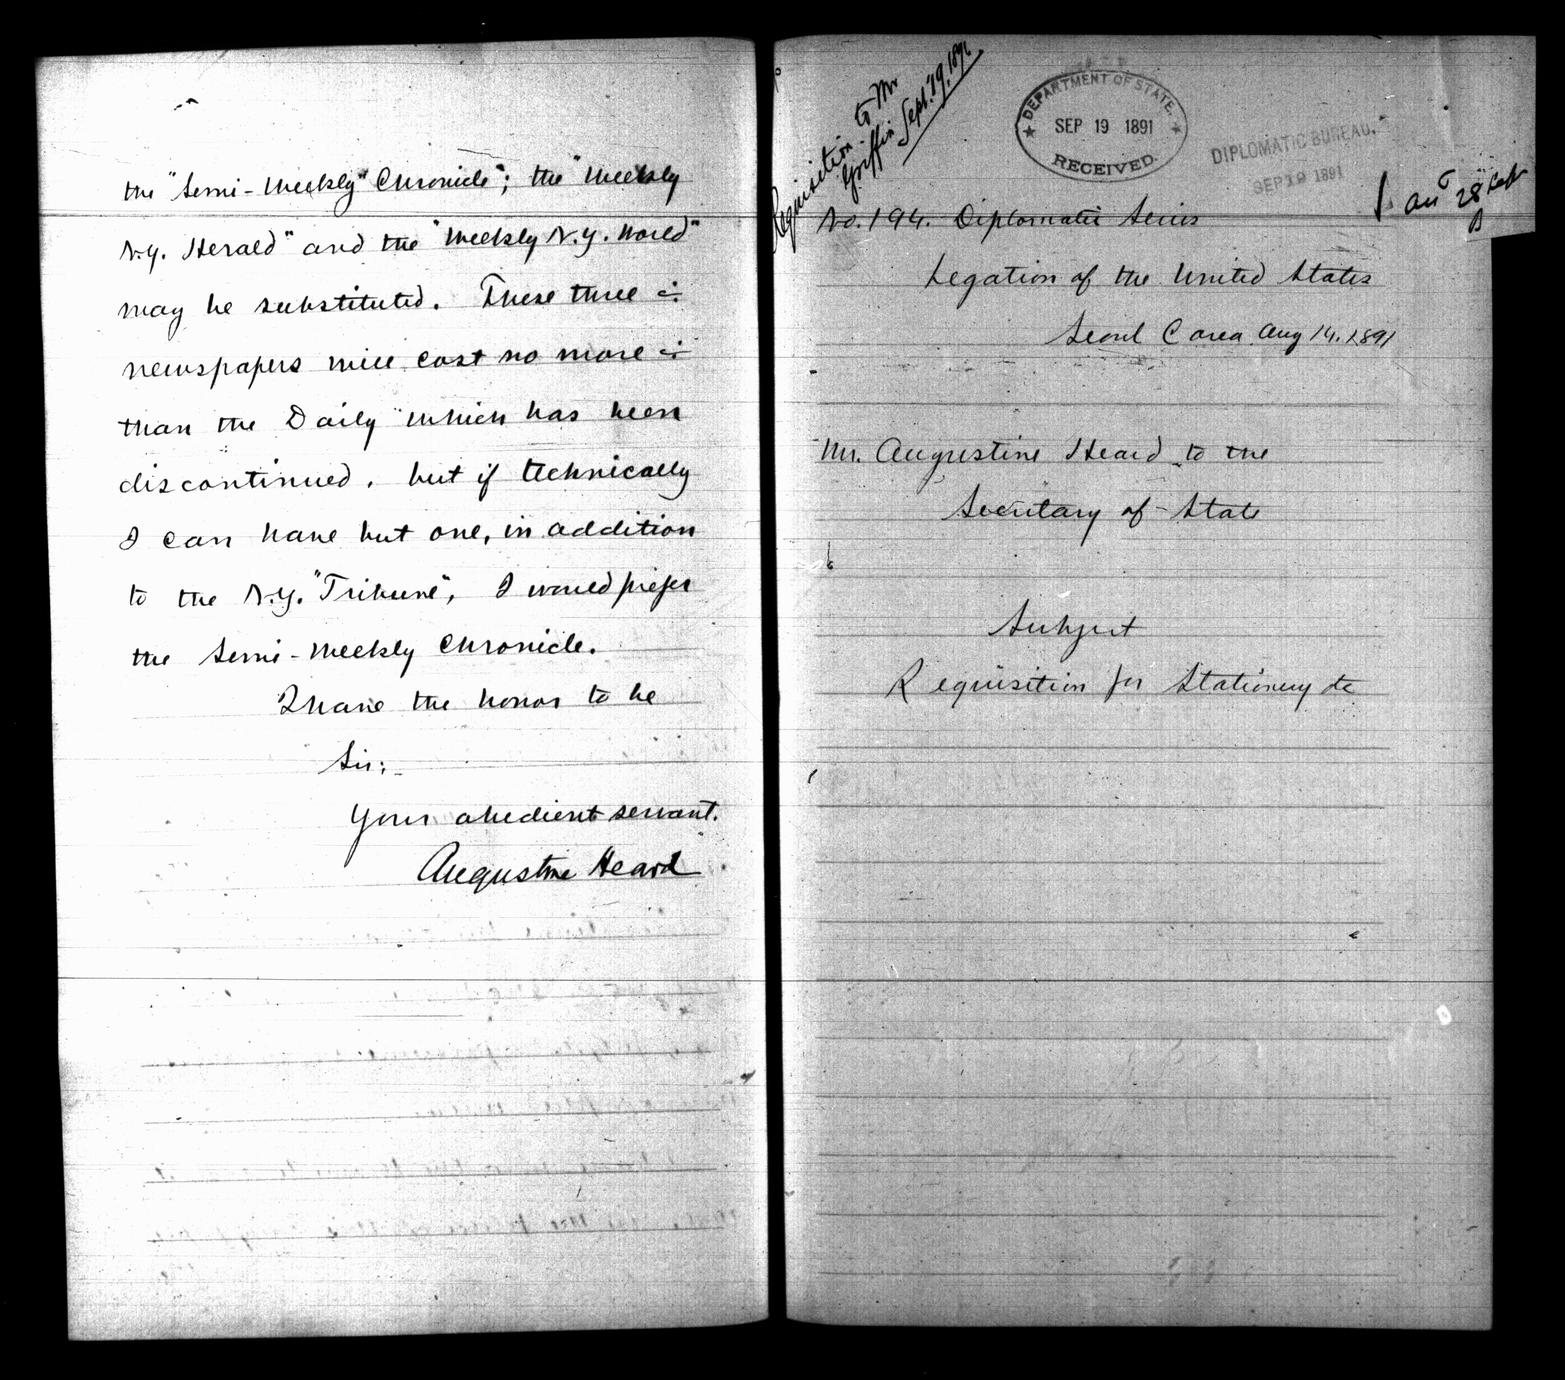 the "Semi-Weekly" Chronicle"; the "Weekly
N.Y. Herald" and the "Weekly N.Y. World"
may be substituted. These three
newspapers will cost no more
than the Daily which has been
discontinued, but if technically
I can have but one, in addition
to the N.Y. "Tribune", I would prefer
the Semi-Weekly Chronicle.
I have the honor to be
Sir:
Your obedient servant.
Augustine Heard
Requisition to Mr
Griffin Sept. 19, 1891
DEPARTMENT OF STATE.
SEP 19 1891
RECEIVED.
DIPLOMATIC BUREAU,
SEP 19 1891
an^d 28 Sept
No. 194. Diplomatic Series
Legation of the United States
Seoul Corea Aug 14. 1891
Mr. Augustine Heard to the
Secretary of State
Subject
Requisition for Stationery &c